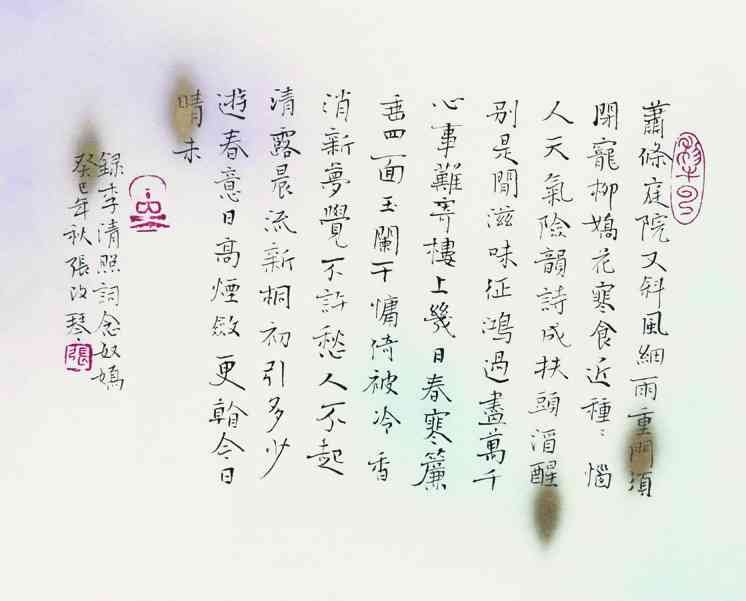 蕭條庭院又斜風細雨重門須
閉寵柳嬌花寒食近種〻惱
人天氣險韻詩成扶頭酒醒
别是閒滋味征鴻過盡萬千
心事難寄樓上幾日春寒簾
垂四面玉闌干慵倚被冷香
消新夢覺不許愁人不起
清露晨流新桐初引多少
遊春意日高煙斂更看今日
晴未
録李清照詞念奴嬌
癸巳年秋張改琴
張